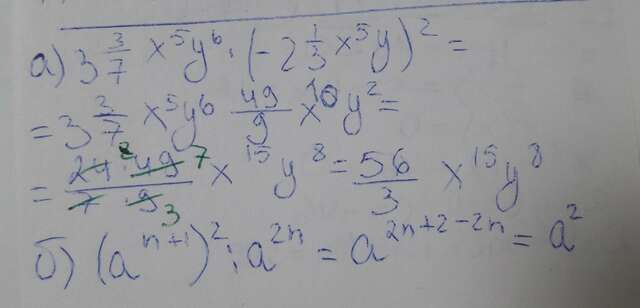 а) 3 3/7 x⁵y⁶ · (-2 1/3 x⁵y)² =
= 3 3/7 x⁵y⁶ 49/9 x¹⁰y² =
= 24⁸·49⁷/7·9₃ x¹⁵y⁸ = 56/3 x¹⁵y⁸
б) (aⁿ⁺¹)² : a²ⁿ = a²ⁿ⁺²⁻²ⁿ = a²